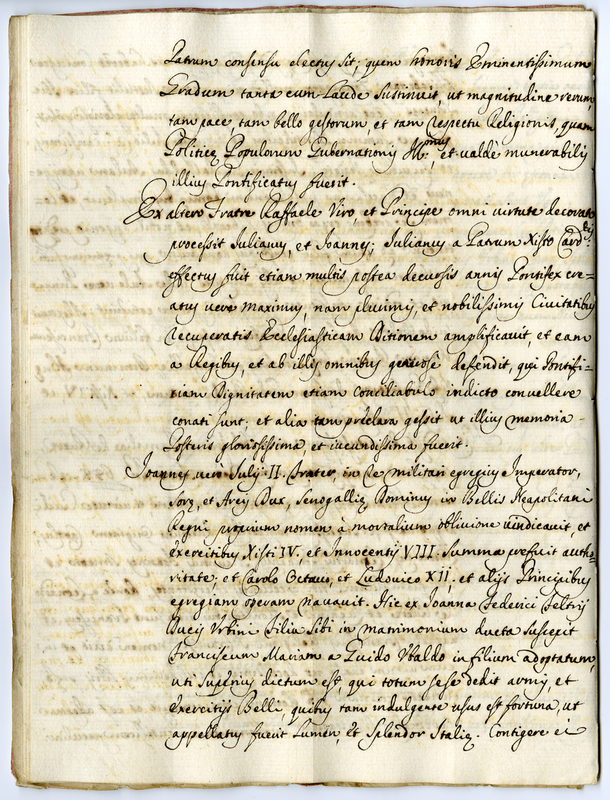 Patrum consensu electus sit; quem honoris Eminentissimum
Gradum tanta cum Laude Sustinuit, ut magnitudine rerum,
tam pace, tam bello gestorum, et tam respectu Religionis, quam
Politicę Populorum Gubernationis et valdè munerabilis
illius Pontificatus fuerit.
Ex altero Fratre Raffaele Viro, et Principe omni virtute decorato
processit Iulianus, et Ioannes; Iulianus a Patruo Xisto Card:lis
effectus fuit etiam multis postea decursis annis Pontifex cre=
atus verè maximus, nam plurimis, et nobilissimis Civitatibus
recuperatis Ecclesiasticam Ditionem amplificavit, et eam
a Regibus, et ab illis omnibus defendit, qui Pontifi=
ciam Dignitatem etiam Conciliabulo indicto convellere
conati sunt; et alia tam pręclara gessit ut illius memoria
Posteris gloriosissima, et iucundissima fuerit.
Ioannes verò Iulij II. Frater, in re militari egregius Imperator,
Sorę, et Arcis Dux, Senogallię Dominus in Bellis Neapolitani
Regni proprium nomen à mortalium oblivione vindicavit, et
exercitibus Xisti IV, et Innocentij VIII. Summa pręfuit autho=
ritate; et Carolo Octavo, et Ludovico XII, et alijs Principibus
egregiam operam navavit. Hic ex Ioanna Federici Feltrij
Ducis Urbini Filia Sibi in matrimonium ducta Suscepit
Franciscum Mariam a Guido Ubaldo in filium adoptatum,
uti Superius dictum est, qui totum sese dedit armis, et
exercitijs Belli, quibus tam indulgente usus est fortuna, ut
appellatus fuerit Lumen, et Splendor Italię. Contigere ei